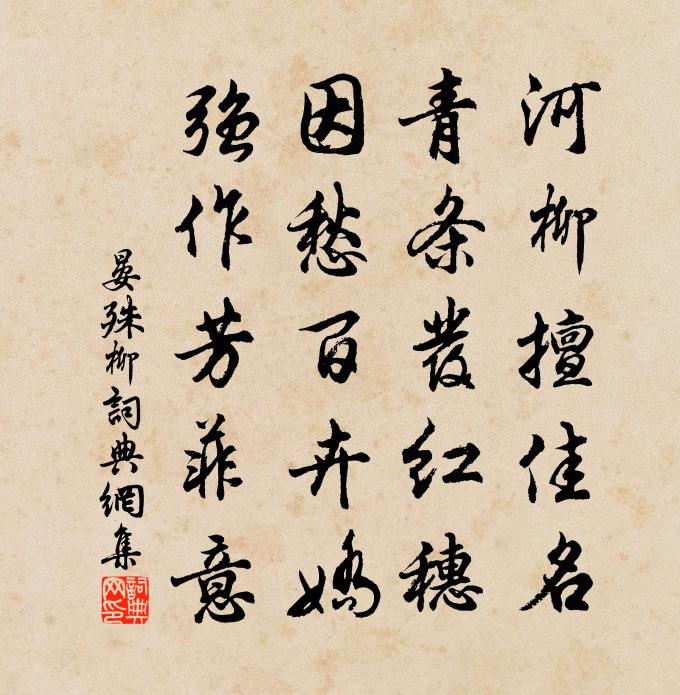 河柳擅佳名
青条發红穗
因愁百卉嬌
強作芳菲意
晏殊柳詞典網集
詞典网印